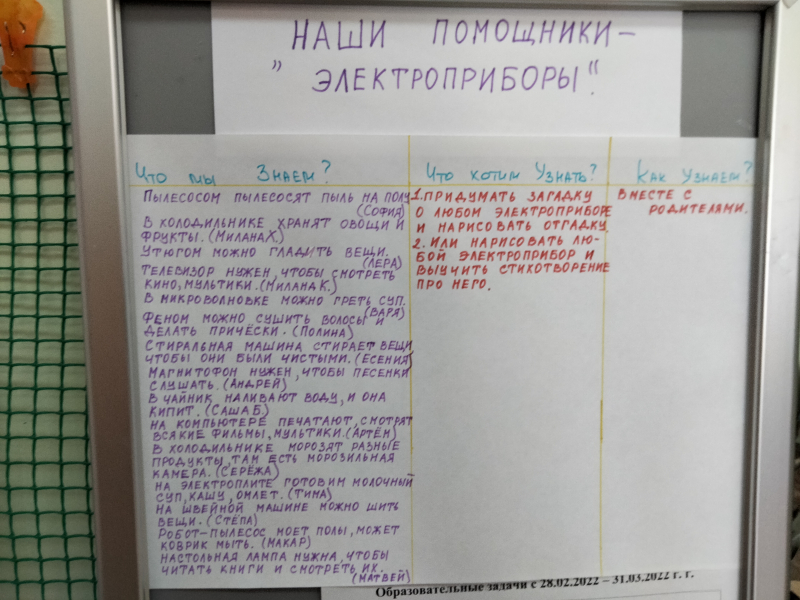 НАШИ ПОМОЩНИКИ–
„ЭЛЕКТРОПРИБОРЫ“.
Что мы Знаем?
Пылесосом пылесосят пыль на полу
(София)
В холодильнике хранят овощи и
фрукты. (Милана Х.)
Утюгом можно гладить вещи.
(Лера)
Телевизор нужен, чтобы смотреть
кино, мультики. (Милана К.)
В микроволновке можно греть суп.
(Варя)
Феном можно сушить волосы и
делать причёски. (Полина)
Стиральная машина стирает вещи,
чтобы они были чистыми. (Есения)
Магнитофон нужен, чтобы песенки
слушать. (Андрей)
В чайник наливают воду, и она
кипит. (Саша Б.)
На компьютере печатают, смотрят
всякие фильмы, мультики. (Артём)
В холодильнике морозят разные
продукты, там есть морозильная
камера. (Серёжа)
На электроплите готовим молочный
суп, кашу, омлет. (Тима)
На швейной машине можно шить
вещи. (Стёпа)
Робот-пылесос моет полы, может
коврик мыть. (Макар)
Настольная лампа нужна, чтобы
читать книги и смотреть их.
(Матвей)
Что хотим Узнать?
1. Придумать загадку
о любом электроприборе
и нарисовать отгадку.
2. Или нарисовать лю-
бой электроприбор и
выучить стихотворение
про него.
Как Узнаем?
Вместе с
родителями.
Образовательные задачи с 28.02.2022 – 31.03.2022 г. г.